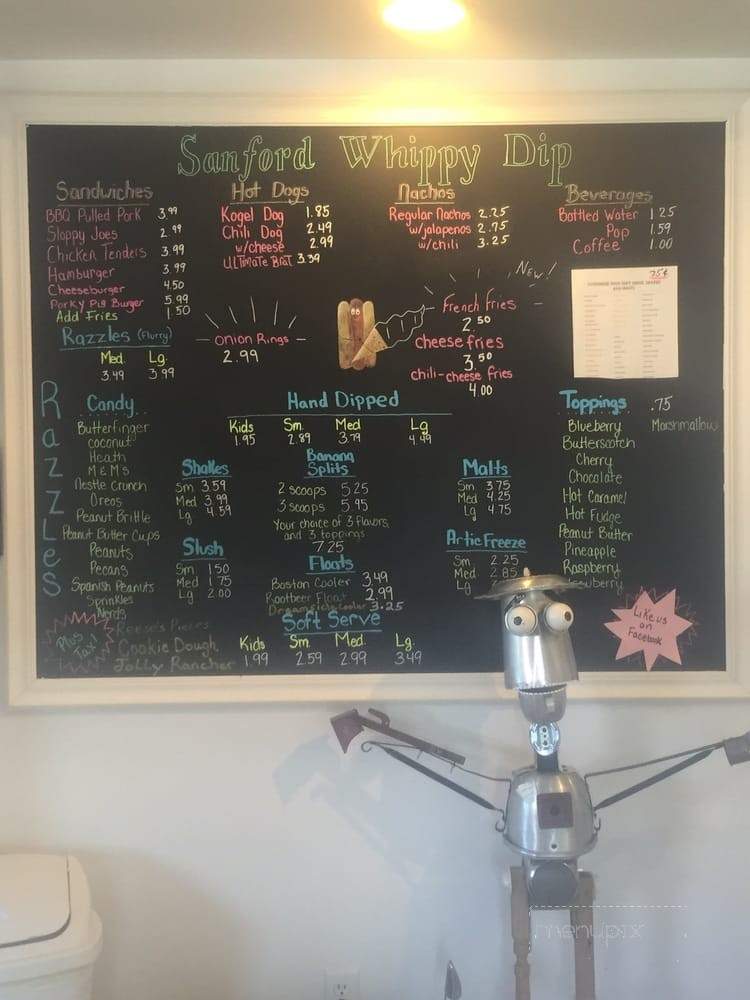 Sanford Whippy Dip
Sandwiches
BBQ Pulled Pork 3.99
Sloppy Joes 2.99
Chicken Tenders 3.99
Hamburger 3.99
Cheeseburger 4.50
Porky Pig Burger 5.99
Add Fries 1.50
Hot Dogs
Kogel Dog 1.85
Chili Dog 2.49
w/cheese 2.99
ULTIMATE BRAT 3.39
Nachos
Regular Nachos 2.25
w/jalapenos 2.75
w/chili 3.25
Beverages
Bottled Water 1.25
Pop 1.59
Coffee 1.00
75¢
NEW!
Onion Rings
2.99
French fries
2.50
cheese fries
3.50
chili-cheese fries
4.00
Razzles (Flurry)
Med. Lg.
3.49 3.99
RazzLes
Candy
Butterfinger
coconut
Heath
M & M's
Nestle Crunch
Oreos
Peanut Brittle
Peanut Butter Cups
Peanuts
Pecans
Spanish Peanuts
Sprinkles
Nerds
Reese's Pieces
Cookie Dough
Jolly Rancher
Plus Tax!
Hand Dipped
Kids Sm. Med Lg
1.95 2.89 3.79 4.49
Shakes
Sm 3.59
Med 3.99
Lg 4.59
Slush
Sm 1.50
Med 1.75
Lg 2.00
Banana
Splits
2 scoops 5.25
3 scoops 5.95
Your choice of 3 flavors
and 3 toppings
7.25
Floats
Boston Cooler 3.49
Rootbeer Float 2.99
Dreamsicle Cooler 3.25
Malts
Sm 3.75
Med 4.25
Lg 4.75
Artic Freeze
Sm 2.25
Med 2.85
Lg
Soft Serve
Kids Sm. Med. Lg.
1.99 2.59 2.99 3.49
Toppings .75
Blueberry Marshmallow
Butterscotch
Cherry
Chocolate
Hot Caramel
Hot Fudge
Peanut Butter
Pineapple
Raspberry
Like us
on
Facebook
menupix